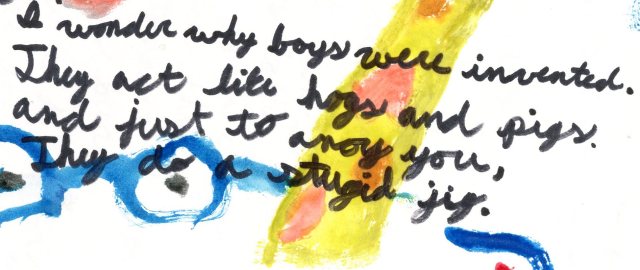 I wonder why boys were invented.
They act like hogs and pigs.
and just to anoy you,
They do a stupid jig.